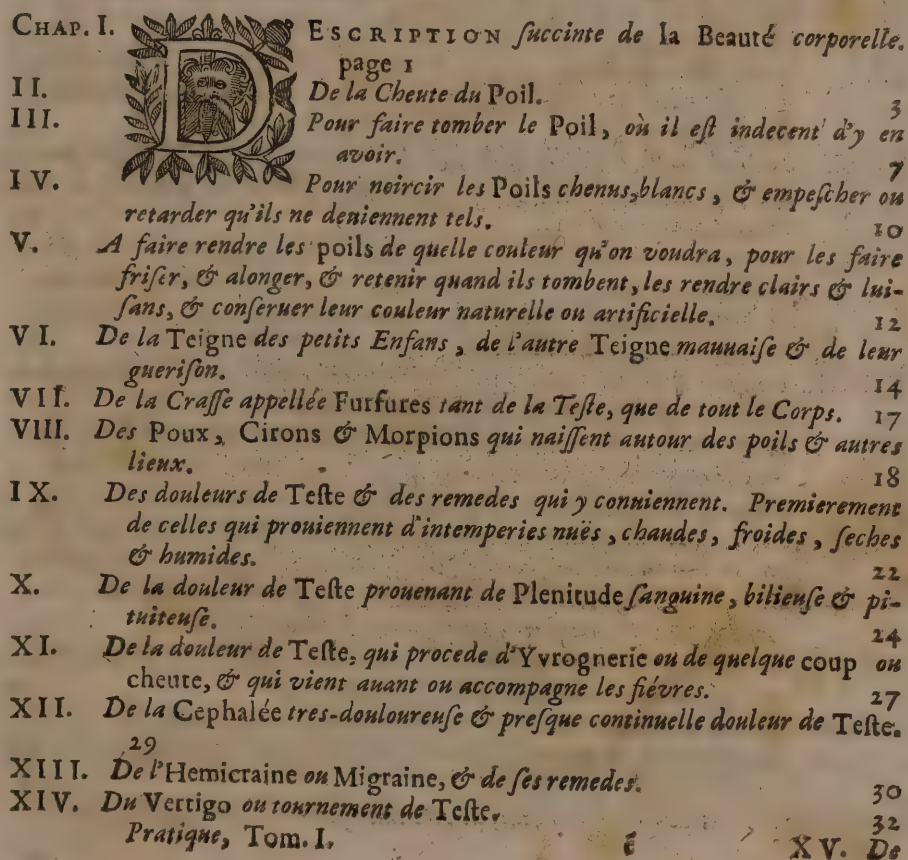 CHAP. I. DESCRIPTION ſuccinte de la Beauté corporelle.
page 1
II. De la Cheute du Poil. 3
III. Pour faire tomber le Poil, où il eſt indecent d'y en
avoir. 7
IV. Pour noircir les Poils chenus, blancs, & empeſcher ou
retarder qu'ils ne deuiennent tels. 10
V. A faire rendre les poils de quelle couleur qu'on voudra, pour les faire
friſer, & alonger, & retenir quand ils tombent, les rendre clairs & lui-
ſans, & conſeruer leur couleur naturelle ou artificielle. 12
VI. De la Teigne des petits Enfans, de l'autre Teigne mauuaiſe & de leur
gueriſon. 14
VII. De la Craſſe appellée Furfures tant de la Teſte, que de tout le Corps. 17
VIII. Des Poux, Cirons & Morpions qui naiſſent autour des poils & autres
lieux. 18
IX. Des douleurs de Teſte & des remedes qui y conuiennent. Premierement
de celles qui prouiennent d'intemperies nuës, chaudes, froides, ſeches
& humides. 22
X. De la douleur de Teſte prouenant de Plenitude ſanguine, bilieuſe & pi-
tuiteuſe. 24
XI. De la douleur de Teſte, qui procede d'Yvrognerie ou de quelque coup ou
cheute, & qui vient auant ou accompagne les fiévres. 27
XII. De la Cephalée tres-douloureuſe & preſque continuelle douleur de Teſte.
29
XIII. De l'Hemicraine ou Migraine, & de ſes remedes. 30
XIV. Du Vertigo ou tournement de Teſte. 32
Pratique, Tom. I. é XV. De